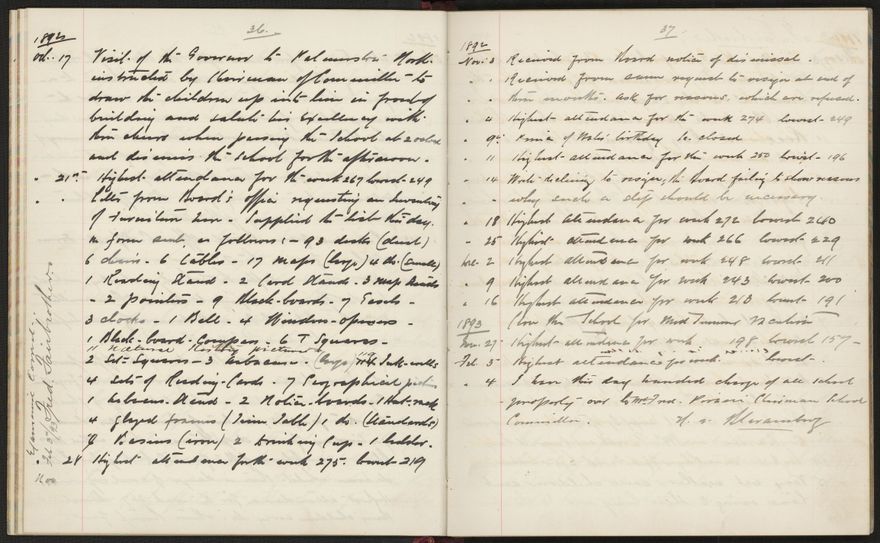 36.
1892
Oct. 17 Visit of the Governor to Palmerston North.
instructed by Chairman of Committee to
draw the children up into line in front of
building and salute his Excellency with
three cheers when passing the School at 2 oclock
and dismiss the School for the afternoon.
" 21st Highest attendance for the week 267 lowest 249
" " Letter from Board's office requesting an Inventory
of Furniture &c. Supplied the list this day.
as follows :- 93 desks (dual)
6 - 6 Tables - 17 maps (large) 4 do. (small)
1 Reading Stand - 2 Cord Stands - 3 map Stands
- 2 pointers - 9 Black-boards - 7 Easels -
3 clocks - 1 Bell - 4 Window-openers -
1 Black-board-Compass - 6 T Squares -
Natural History pictures
2 Set-Squares - 3 Abacus - (large) Ink-wells
4 Sets of Reading-Cards - 7 Geographical
1 Abacus-Stand - 2 Notice-boards - 1 Hat-rack
4 glazed frames (Time Table) 1 do. (Standards)
Basins (iron) 2 Drinking Cups - 1 ladder.
" 28 Highest attendance for the week 275 lowest 219
Nov
Examined Correct
Fred.
37.
1892
Nov. 3 Received from Board notice of dismissal.
" " Received from same request to resign at end of
three months. Ask for reasons, which are refused.
" 4 Highest attendance for the week 274 lowest 249
" 9th Prince of Wales' birthday closed
" 11 Highest attendance for the week 250 lowest 196
" 14 Wrote declining to resign, the Board failing to show reasons
" " why such a step should be necessary
" 18 Highest attendance for week 272 lowest 260
" 25 Highest attendance for week 266 lowest 229
Dec. 2 Highest attendance for week 248 lowest 211
" 9 Highest attendance for week 243 lowest 200
" 16 Highest attendance for week 213 lowest 191
1893 Close the School for Mid Summer Vacation
27 Highest attendance for week 198 lowest 157 -
Feb. 3 Highest attendance for week lowest
" 4 I have this day handed charge of all school
property over to Mr Fred. Chairman School
Committee.